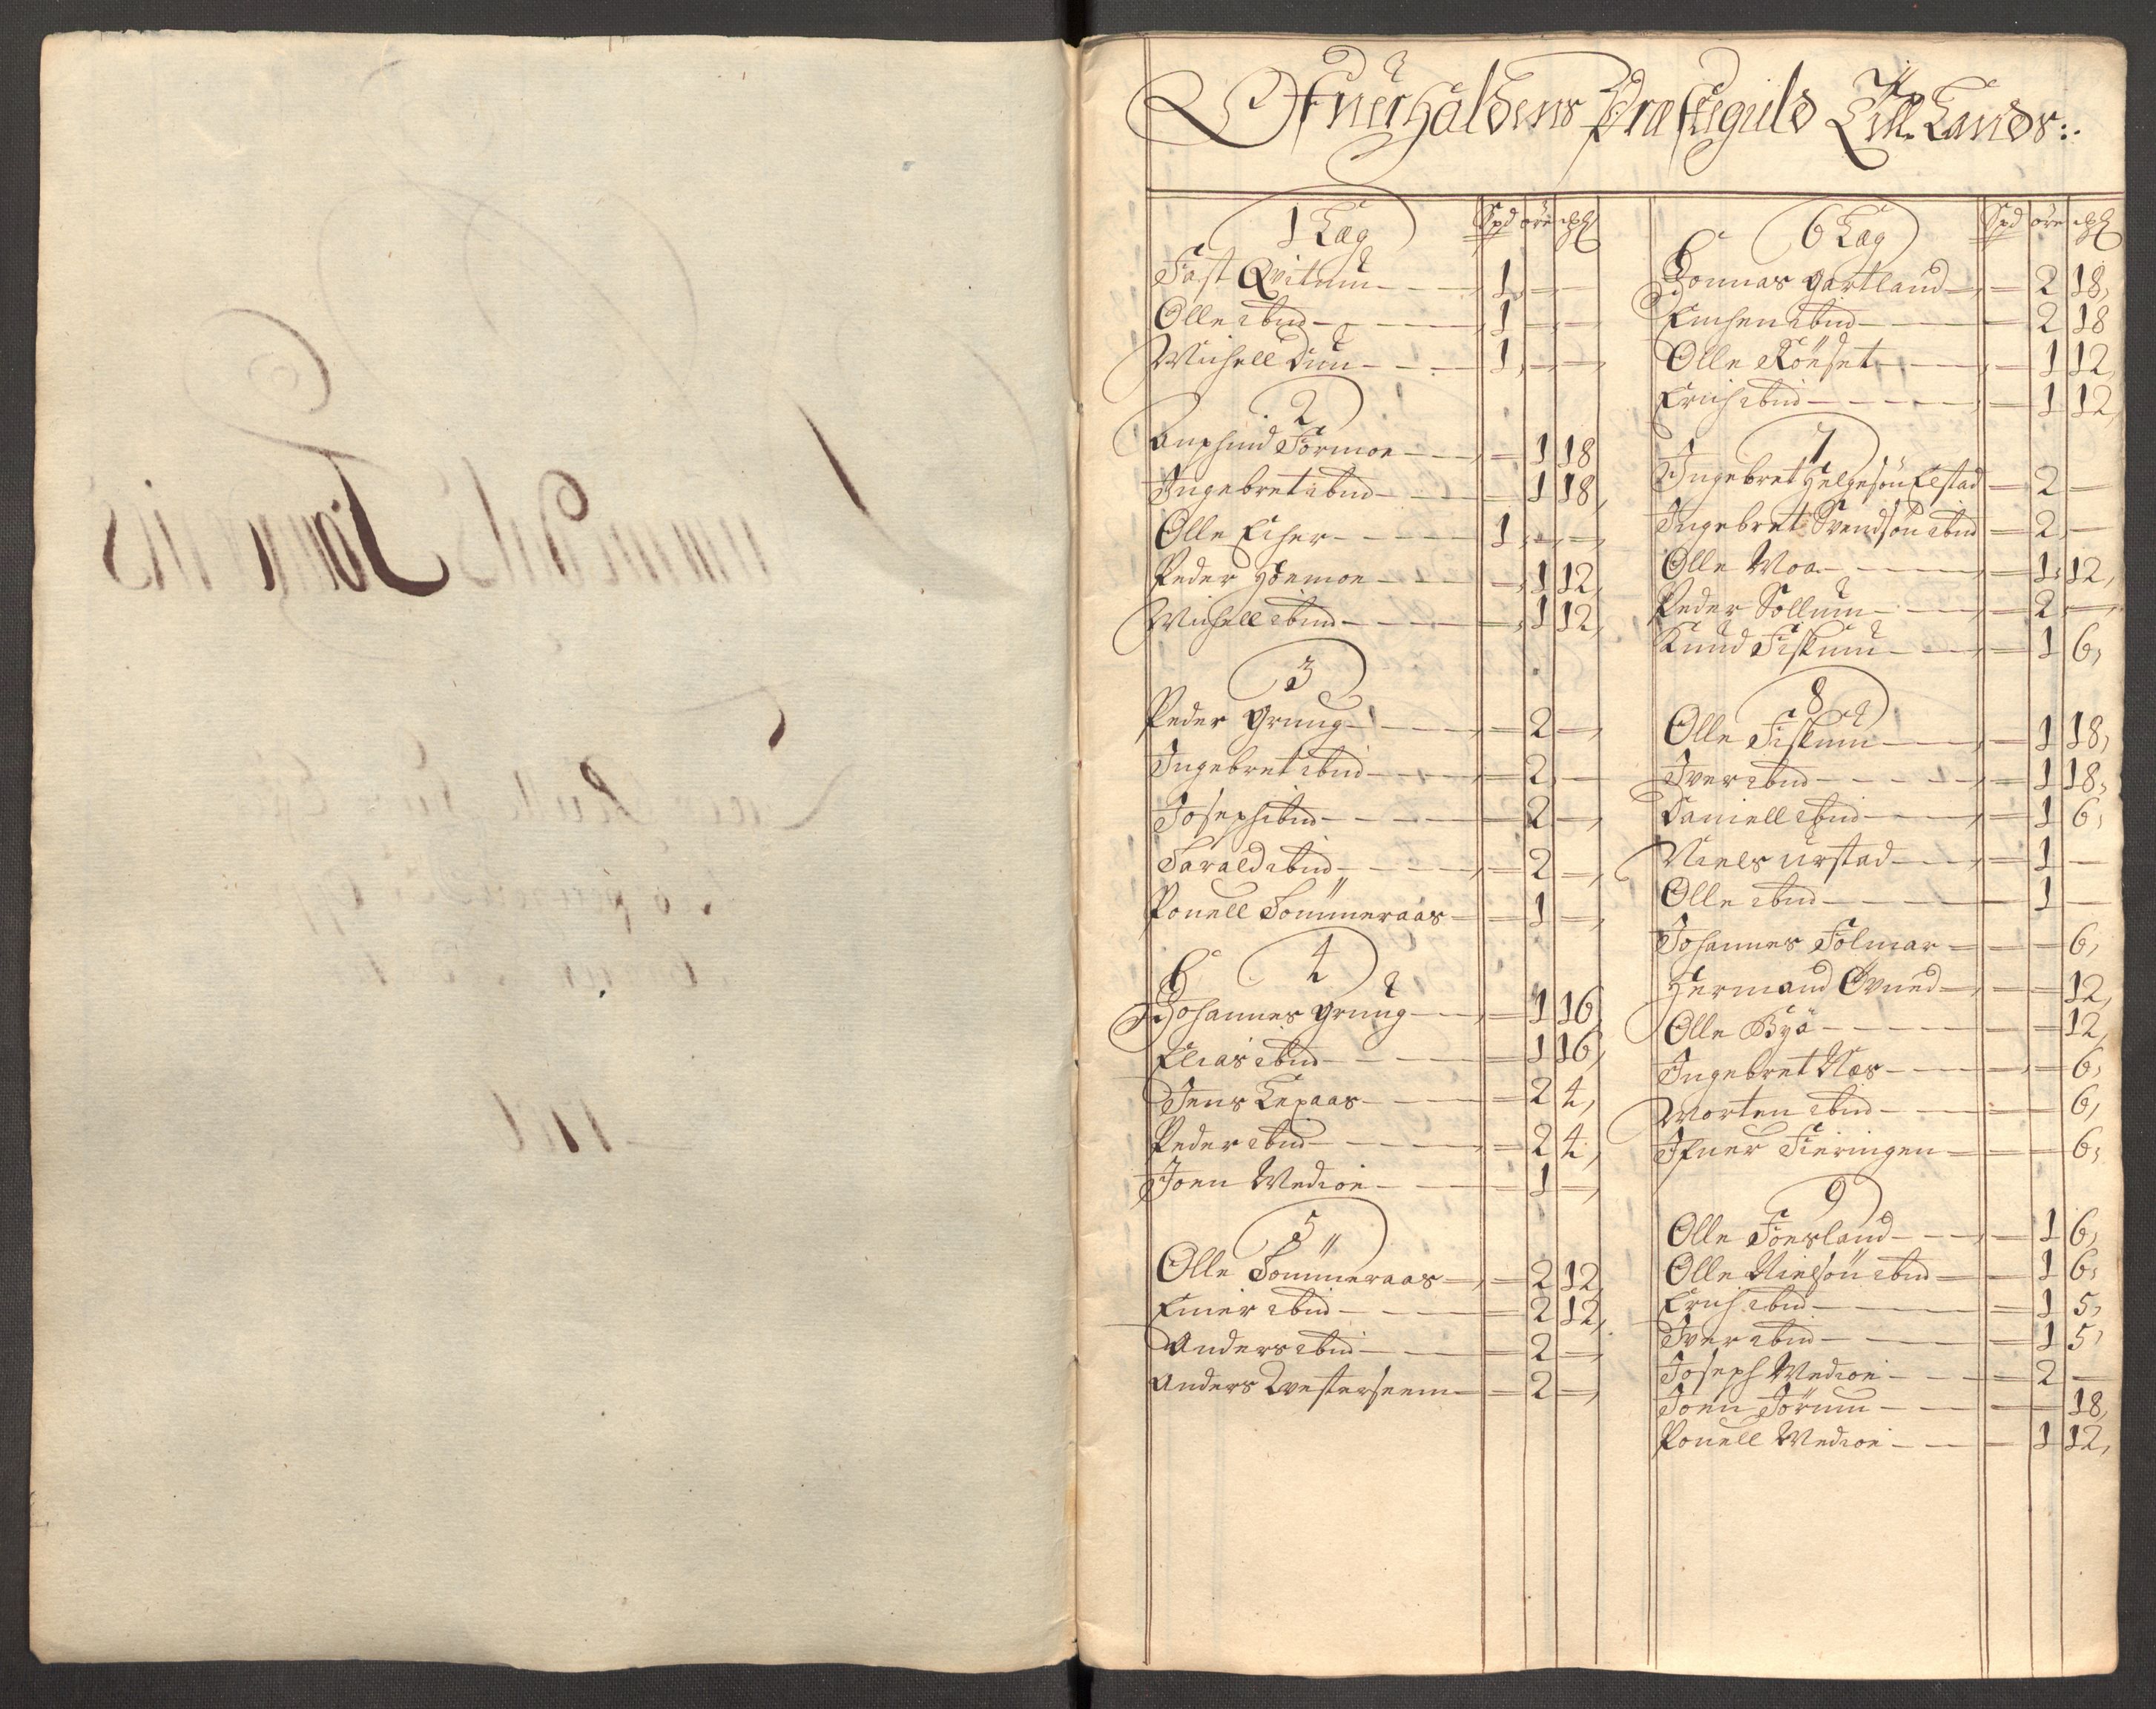 Ofuerhaldens Præstegield Till Lands:
1 Læg Spd öre
Fast Qvitum - 1 - -
Olle ibid - 1 - -
Michell Duun - 1 - -
2
Anphind Formoe - - 1 18
Ingebret ibid - - 1 18
Olle Eiher - 1 - -
Peder Hoemoe - - 1 12
Michell ibid - - 1 12
3
Peder Grung - - 2 -
Ingebret ibid - - 2 -
Joseph ibid - - 2 -
Harald ibid - - 2 -
Pouell Sommeraas - - 1 -
4
Johannes Grung - - 1 16
Elias ibid - - 1 16
Jens Lexaas - - 2 4
Peder ibid - - 2 4
Joen Medioe - - 1 -
5
Olle Sommeraas - - 2 12
Einer ibid - - 2 12
Anders ibid - - 2 -
Anders Westerseem - - 2 -
6 Læg Spd öre
Jonnas Gartland - - 2 18
ibid - - 2 18
Olle Rönset - - 1 12
Erich ibid - - 1 12
7
Ingebret Helgesön Elstad - 2 -
Ingebret Svendsön ibid - 2 -
Olle Moa - - 1 12
Peder Sollum - - 2 -
Knud Fiskum - - 1 6
8
Olle Fiskum - - 1 18
Iver ibid - - 1 18
Daniell ibid - - 1 6
Niels Urstad - - 1 -
Olle ibid - - 1 -
Johannes Folmar - - - 6
Hermand Øvned - - - 12
Olle Byä - - - 12
Ingebret Næs - - - 6
Morten ibid - - - 6
Ifuer Fieringen - - - 6
9
Olle Foesland - - 1 6
Olle Nielsön ibid - - 1 6
Erich ibid - - 1 5
Iver ibid - - 1 5
Joseph Medioe - - 2 -
Joen Jörum - - - 18
Pouell Medioe - - 1 12